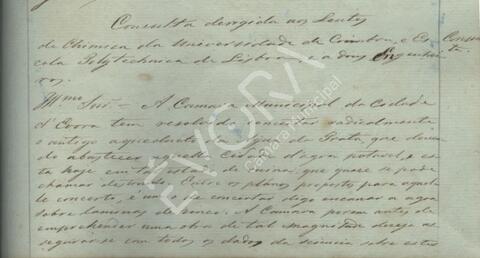 Consulta dirigida aos Lentes
de Chimica da Universidade de Coimbra, e Es
cola Polytechnica de Lisboa, e a dous Engenhei
ros.
Consul
ta.
Illmo Snr. = A Camara Municipal da Cidade
d'Evora tem resolvido concertar radicalmente
o antigo aqueducto da Agua de Prata que
de abastecer aquella Cidade d'agoa potavel, e es
ta hoje em tal estado de ruina que quase se pode
chamar destruido. Entre os planos propostos para aquel
le concerto, é um o de concertar digo encanar a agoa
sobre laminas de zinco. A Camara porem antes de
emprehender uma obra de tal magnitude deseja as
segurar-se com todos os dados da sciencia sobre estes
ÉVORA
Câmara Municipal